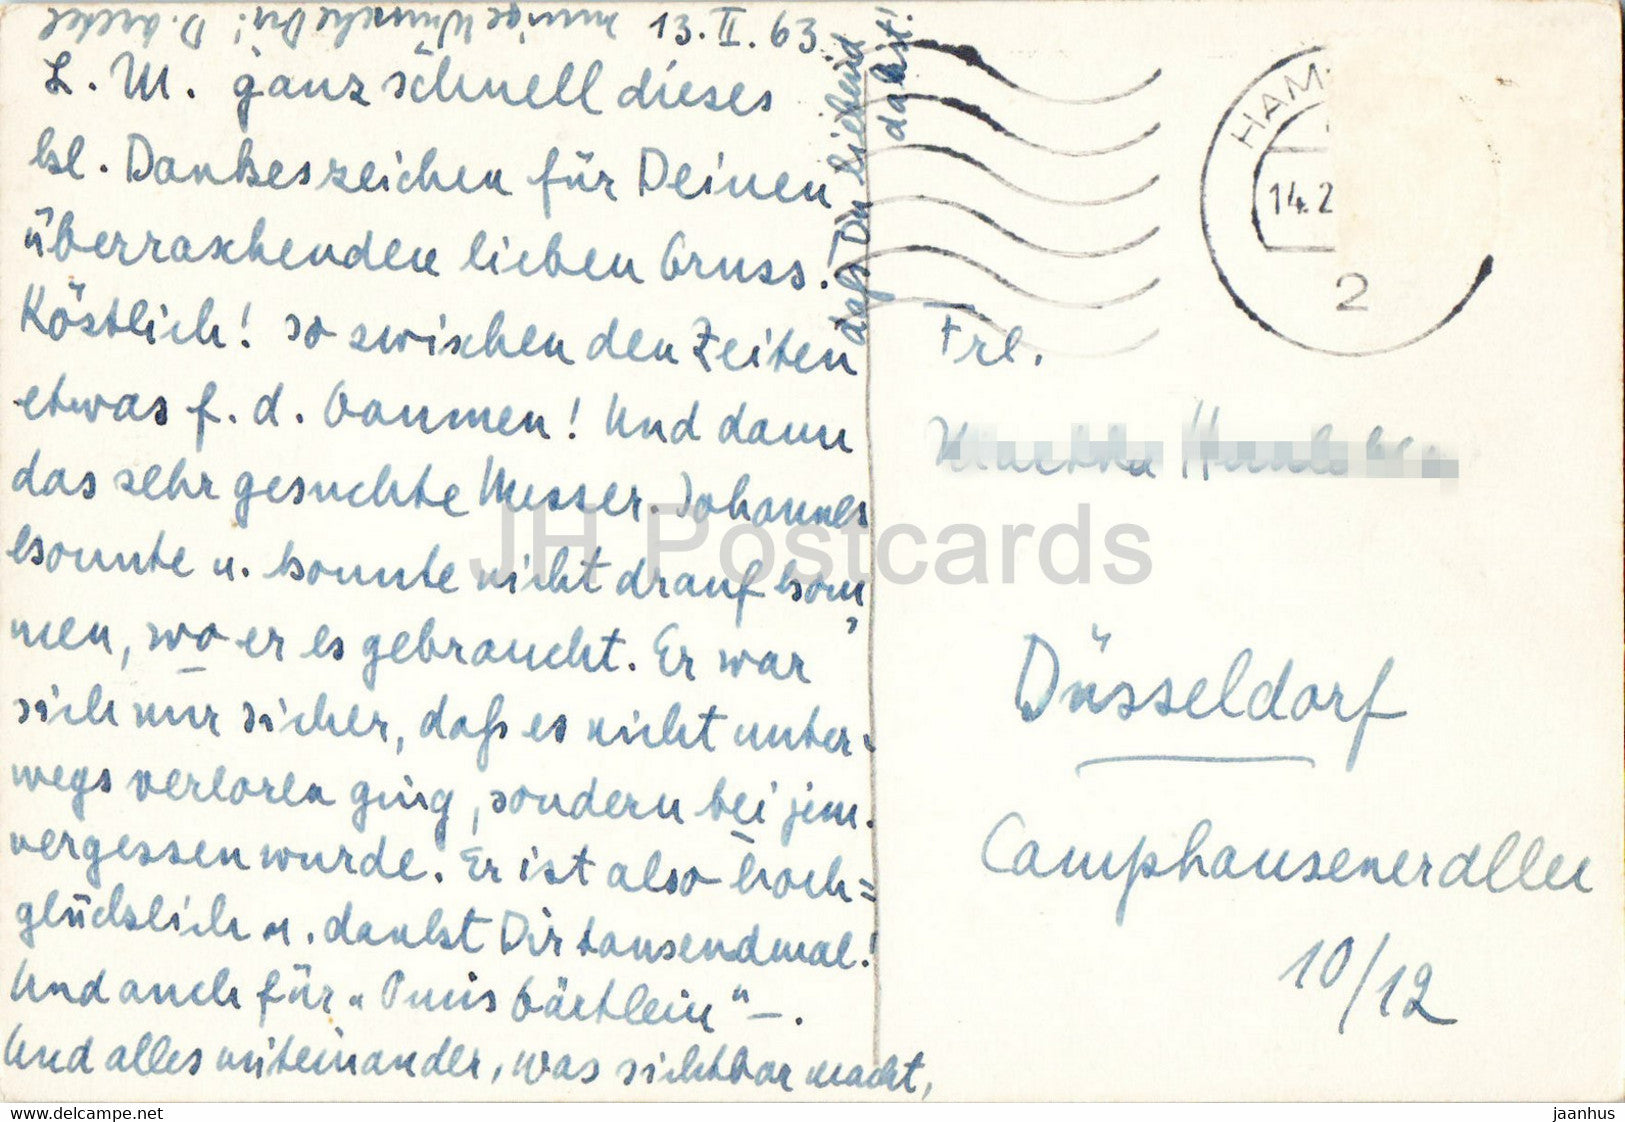 13. II. 63
L. M. ganz schnell dieses
kl. Dankeszeichen für Deinen
überraschenden lieben Gruss!
Köstlich! so zwischen den Zeiten
etwas f. d. Gaumen! Und dann
das sehr gesuchte Messer. Johannes
konnte u. konnte nicht drauf kom
men, wo er es gebraucht. Er war
sich nur sicher, daß es nicht unter-
wegs verloren ging, sondern bei jem.
vergessen wurde. Er ist also hoch=
glücklich u. dankt Dir tausendmal!
Und auch für „Puuis Gärtlein" –.
Und alles miteinander, was sichtbar macht,
daß Du liebend
dahst!
innige Wünsche Dir! D.
HAM
14.2
2
Frl.
Düsseldorf
Camphausenerallee
10/12
JH Postcards
hip.eBid.com
jaanhus